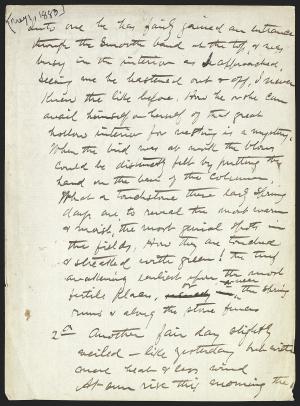 (May 1, 1883)
into one he has fairly gained an entrance
through the smooth band at the top, & very
busy in the interior as I approached.
Seeing me he hastened out & off, I never
Knew the like before. How he or she can
avail himself or herself of the great
hollow interior for nesting is a mystery.
When the bird was at work the blows
could be distinctly felt by putting the
hand on the base of the Column.
What a touchstone these early spring
days are to reveal the most warm
& moist, the most genial spots, in
the fields, How they are touched
& streaked with green! the turf
awakening earliest upon the most
fertile places, or where the spring
runs & along the stone fences
2nd Another fair day slightly
veiled – like yesterday but with
more heat & less wind
At sun rise this morning the